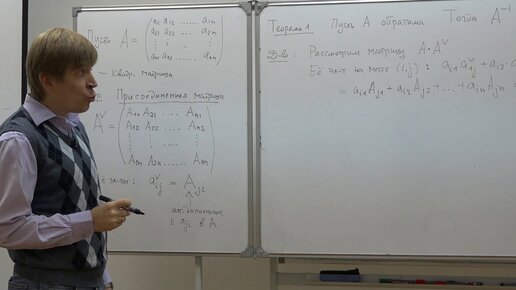 Пусть A = ( a₁₁ a₁₂ ..... a₁ₙ
a₂₁ a₂₂ ..... a₂ₙ
aₙ₁ aₙ₂ ..... aₙₙ )
— квадр. матрица
Присоединенная матрица
A^∨ = ( A₁₁ A₂₁ ..... Aₙ₁
A₁₂ A₂₂ ..... Aₙ₂
A₁ₙ A₂ₙ ..... Aₙₙ )
эл-ты: a^∨ᵢⱼ = Aⱼᵢ
алг. дополнение
к aⱼᵢ в A.
Теорема 1 Пусть A обратима. Тогда A⁻¹
Д-во: Рассмотрим матрицу A·A^∨
Её эл-т на месте (i,j): aᵢ₁ a^∨₁ⱼ + aᵢ₂ a
= aᵢ₁Aⱼ₁ + aᵢ₂Aⱼ₂ + ... + aᵢₙAⱼₙ =